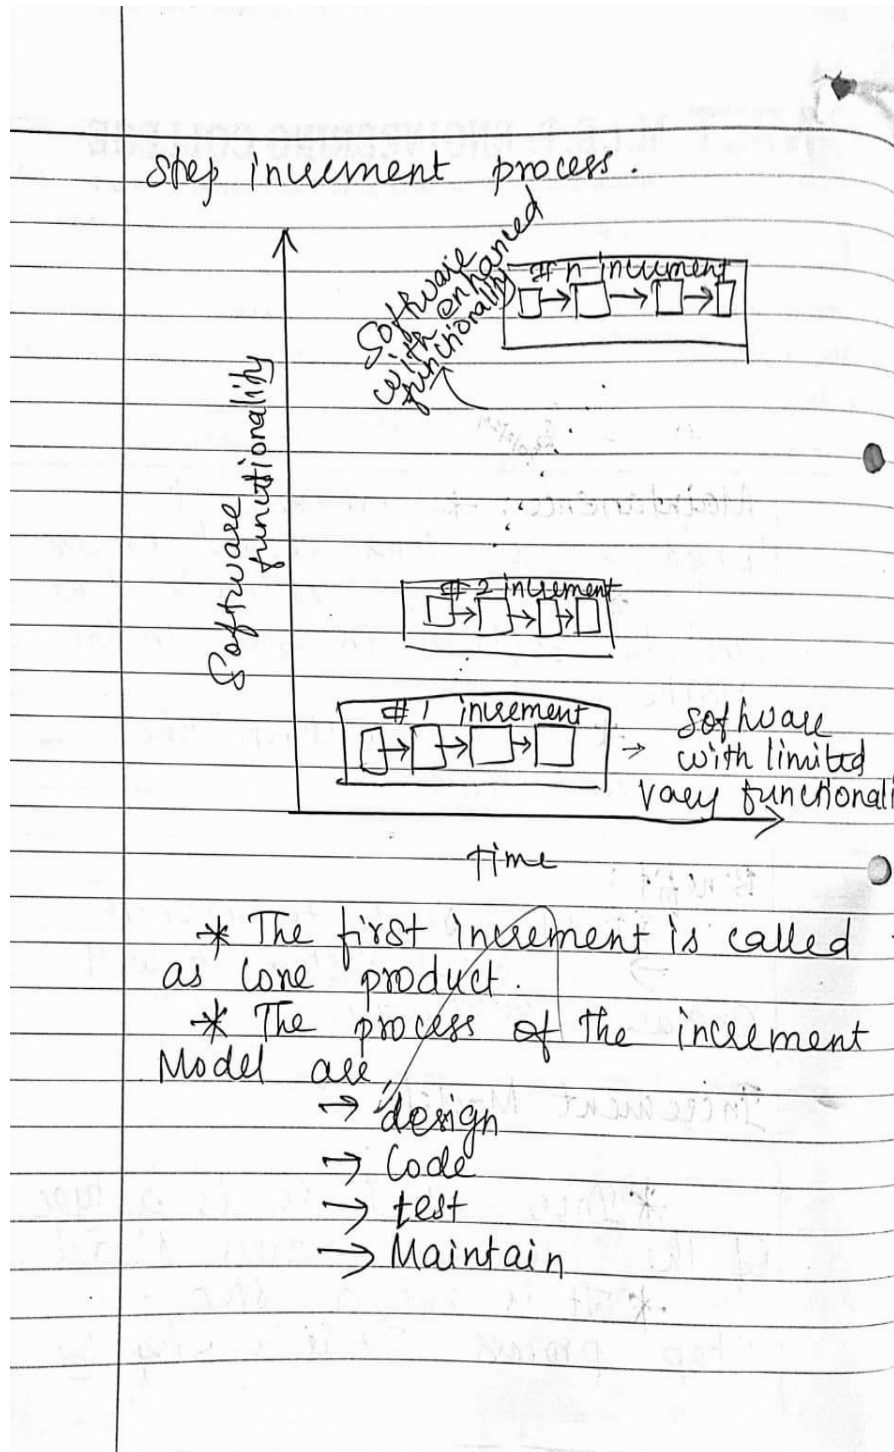 Step increment process.
Software
with enhanced
functionality
# n increment
Software
functionality
# 2 increment
# 1 increment
software
with limited
vary functionali
Time
* The first increment is called
as core product.
* The process of the increment
Model are
→ design
→ Code
→ test
→ Maintain